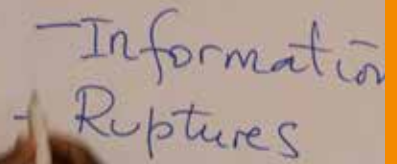 - Information
- Ruptures